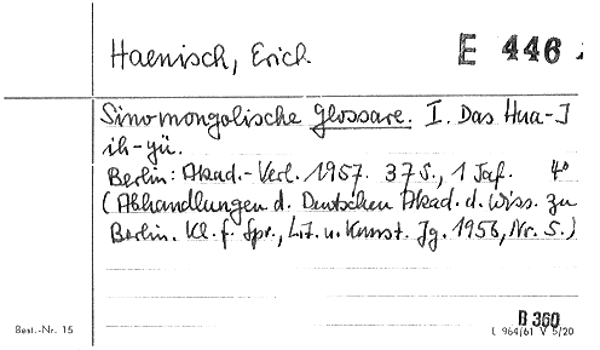 Haenisch, Erich. E 446
Sinomongolische Glossare. I. Das Hua-I
ih-yü.
Berlin: Akad.-Verl. 1957. 37 S., 1 Taf. 4°
(Abhandlungen d. Deutschen Akad. d. Wiss. zu
Berlin. Kl. f. Spr., Lit. u. Kunst. Jg. 1956, Nr. 5.)
B 360
Best.-Nr. 15 L 964/61 V 5/20